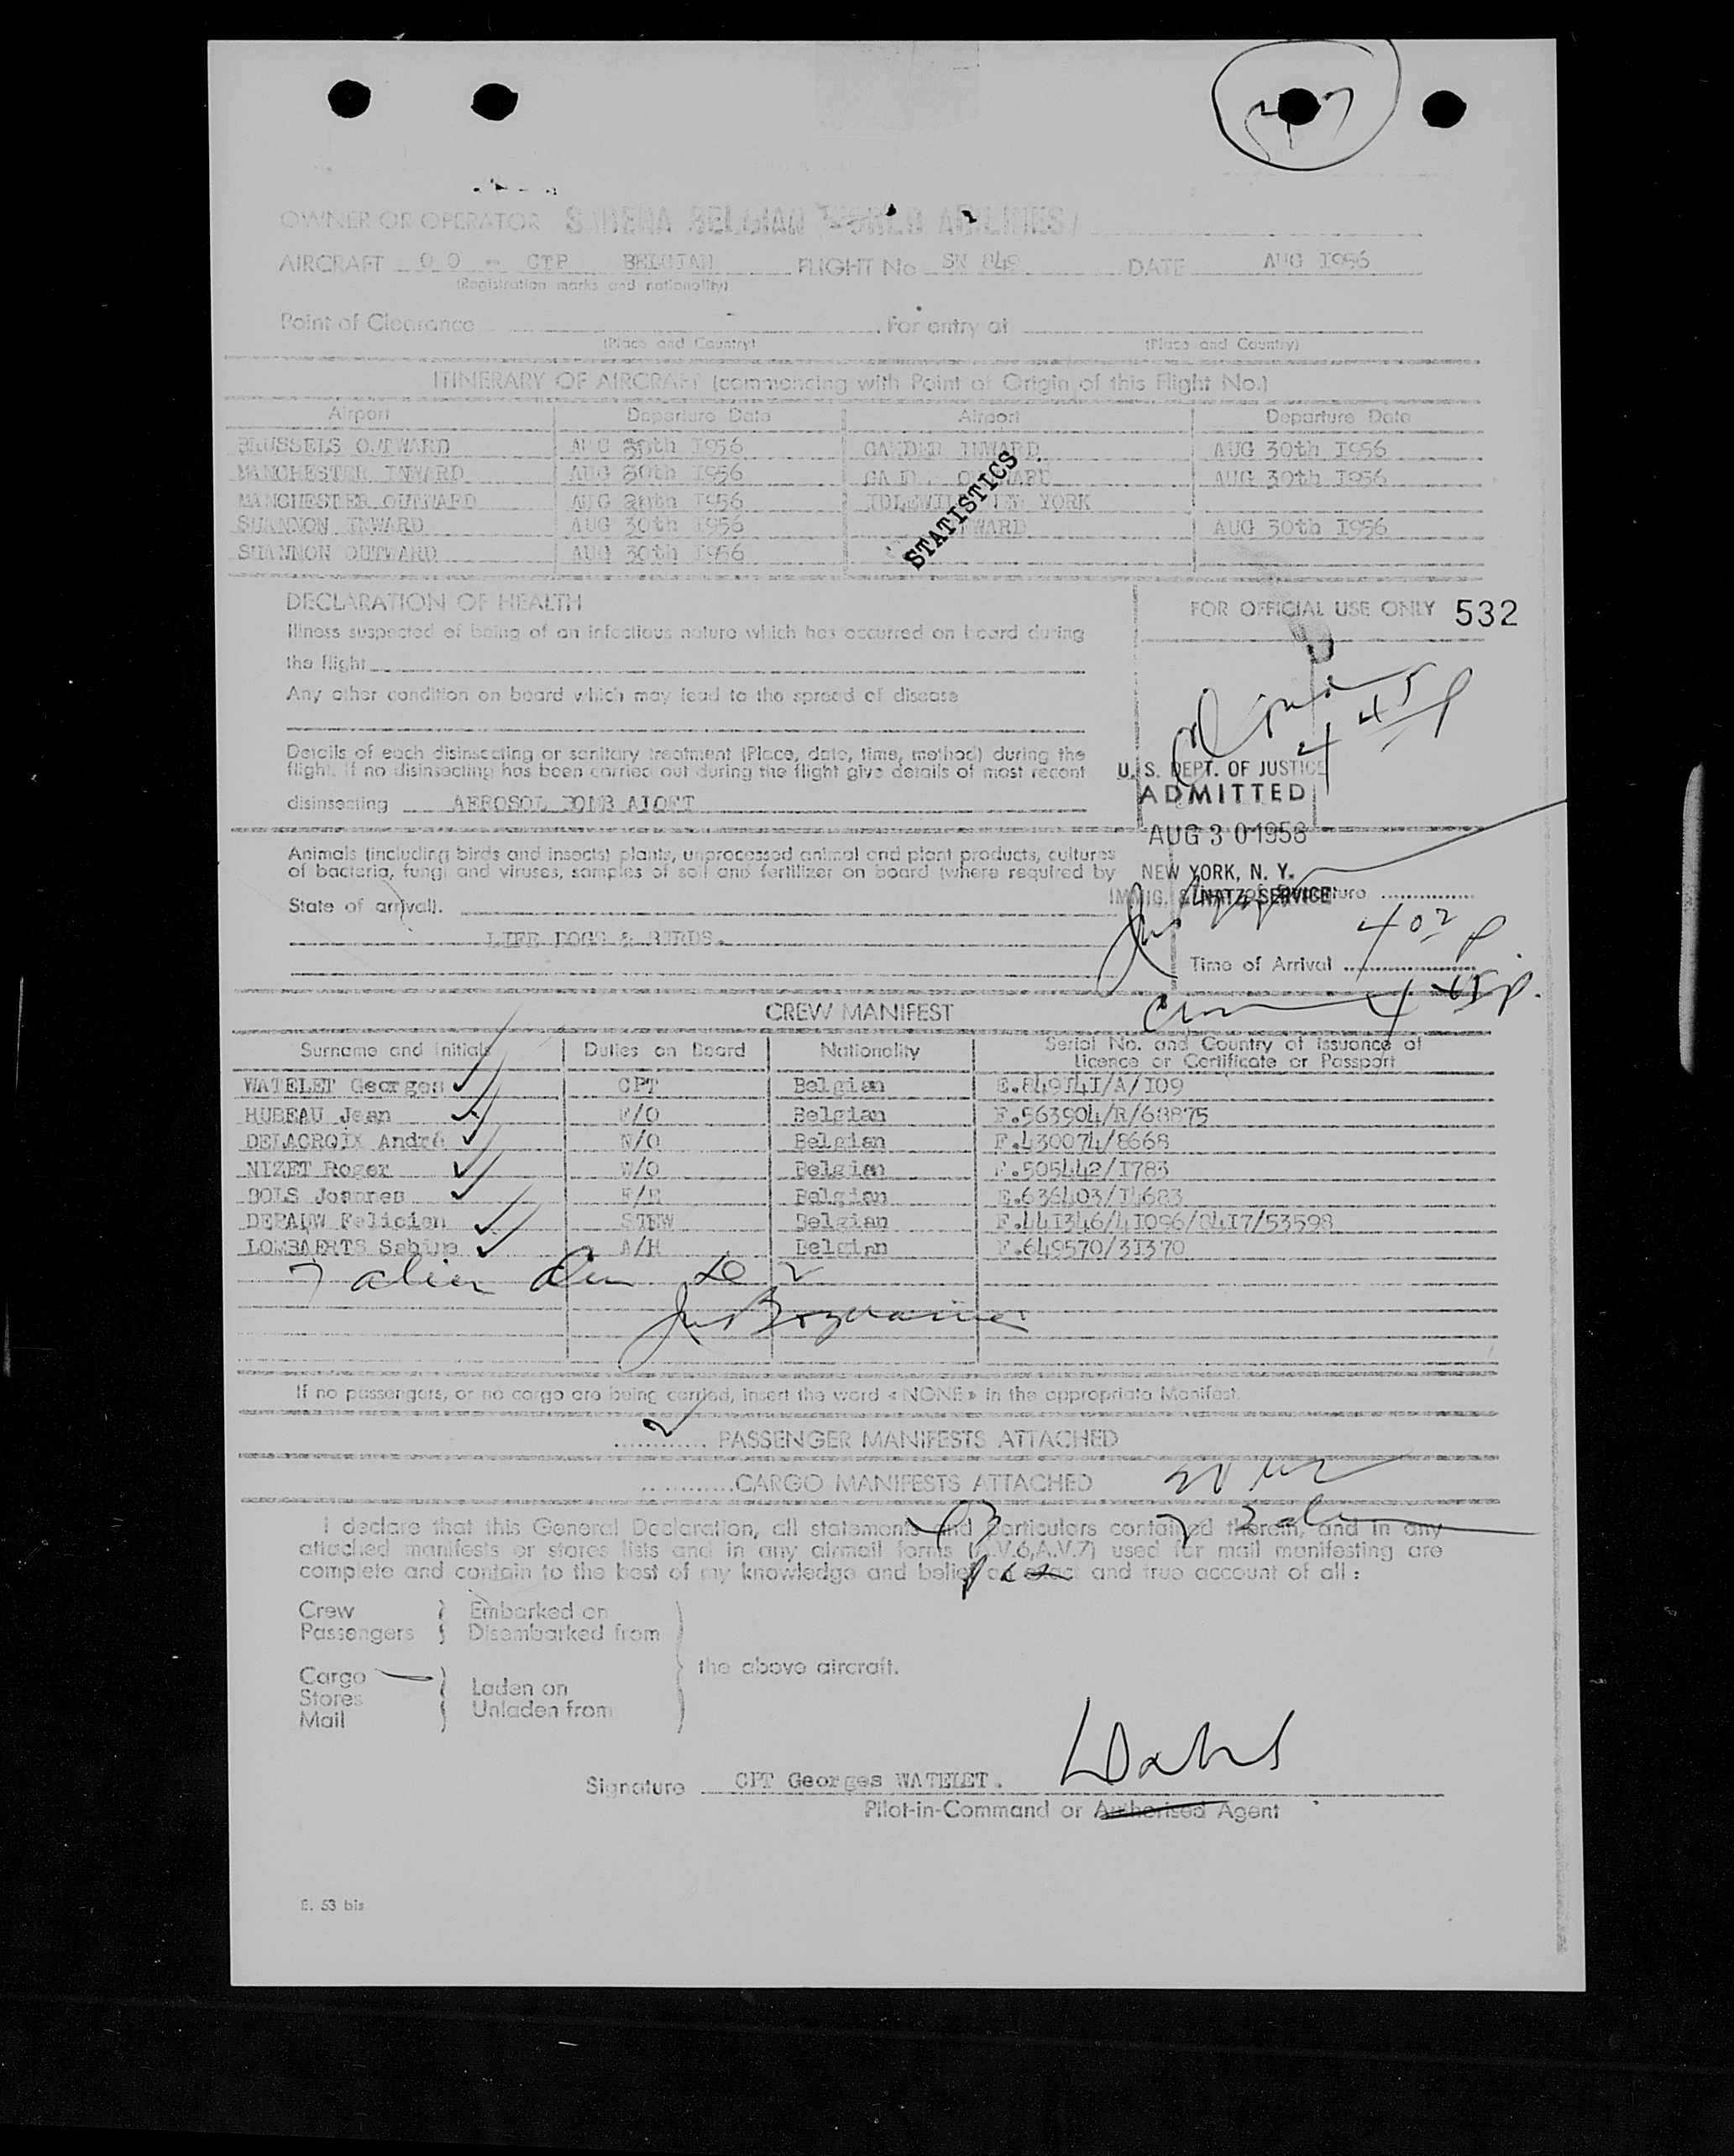 OWNER OR OPERATOR SABENA BELGIAN WORLD AIRLINES
AIRCRAFT OO - CTP BELGIAN FLIGHT No SN 849 DATE AUG I956
(Registration marks and nationality)
Point of Clearance For entry at
(Place and Country) (Place and Country)
ITINERARY OF AIRCRAFT (commencing with Point of Origin of this Flight No.)
Airport Departure Date Airport Departure Date
BRUSSELS OUTWARD AUG 30th I956 GANDER INWARD AUG 30th I956
MANCHESTER INWARD AUG 30th I956 OUTWARD AUG 30th I956
MANCHESTER OUTWARD AUG 30th I956 IDLEWILD NEW YORK
SHANNON INWARD AUG 30th I956 INWARD AUG 30th I956
SHANNON OUTWARD AUG 30th I956
STATISTICS
DECLARATION OF HEALTH FOR OFFICIAL USE ONLY 532
Illness suspected of being of an infectious nature which has occurred on board during
the flight
Any other condition on board which may lead to the spread of disease
4 45 p
Details of each disinsecting or sanitary treatment (Place, date, time, method) during the
flight. If no disinsecting has been carried out during the flight give details of most recent
disinsecting AEROSOL BOMB ALOFT
U. S. DEPT. OF JUSTICE
ADMITTED
AUG 30 1956
NEW YORK, N. Y.
IMMIG. & NATZ. SERVICE
Animals (including birds and insects) plants, unprocessed animal and plant products, cultures
of bacteria, fungi and viruses, samples of soil and fertilizer on board (where required by
State of arrival).
LIFE DOGS & BIRDS.
Time of Arrival 4 02 p.
4 45 p.
CREW MANIFEST
Surname and Initials Duties on Board Nationality Serial No. and Country of Issuance of
Licence or Certificate or Passport
WATELET Georges CPT Belgian E.849I4I/A/I09
HUBEAU Jean F/O Belgian F.563904/R/68875
DELACROIX André N/O Belgian F.430074/8668
NIZET Roger W/O Belgian F.505442/I783
BOLS Joannes F/E Belgian E.636403/I4683
DEPAUW Felicien STEW Belgian F.44I346/4I096/04I7/53598
LOMBAERTS Sabine A/H Belgian F.649570/3I370
7 alien
If no passengers, or no cargo are being carried, insert the word « NONE » in the appropriate Manifest.
2 PASSENGER MANIFESTS ATTACHED
CARGO MANIFESTS ATTACHED
I declare that this General Declaration, all statements and particulars contained therein, and in any
attached manifests or stores lists and in any airmail forms (A.V.6,A.V.7) used for mail manifesting are
complete and contain to the best of my knowledge and belief an exact and true account of all :
Crew Embarked on
Passengers Disembarked from
the above aircraft.
Cargo
Stores Laden on
Mail Unladen from
Signature CPT Georges WATELET.
Pilot-in-Command or Authorised Agent
E. 53 bis